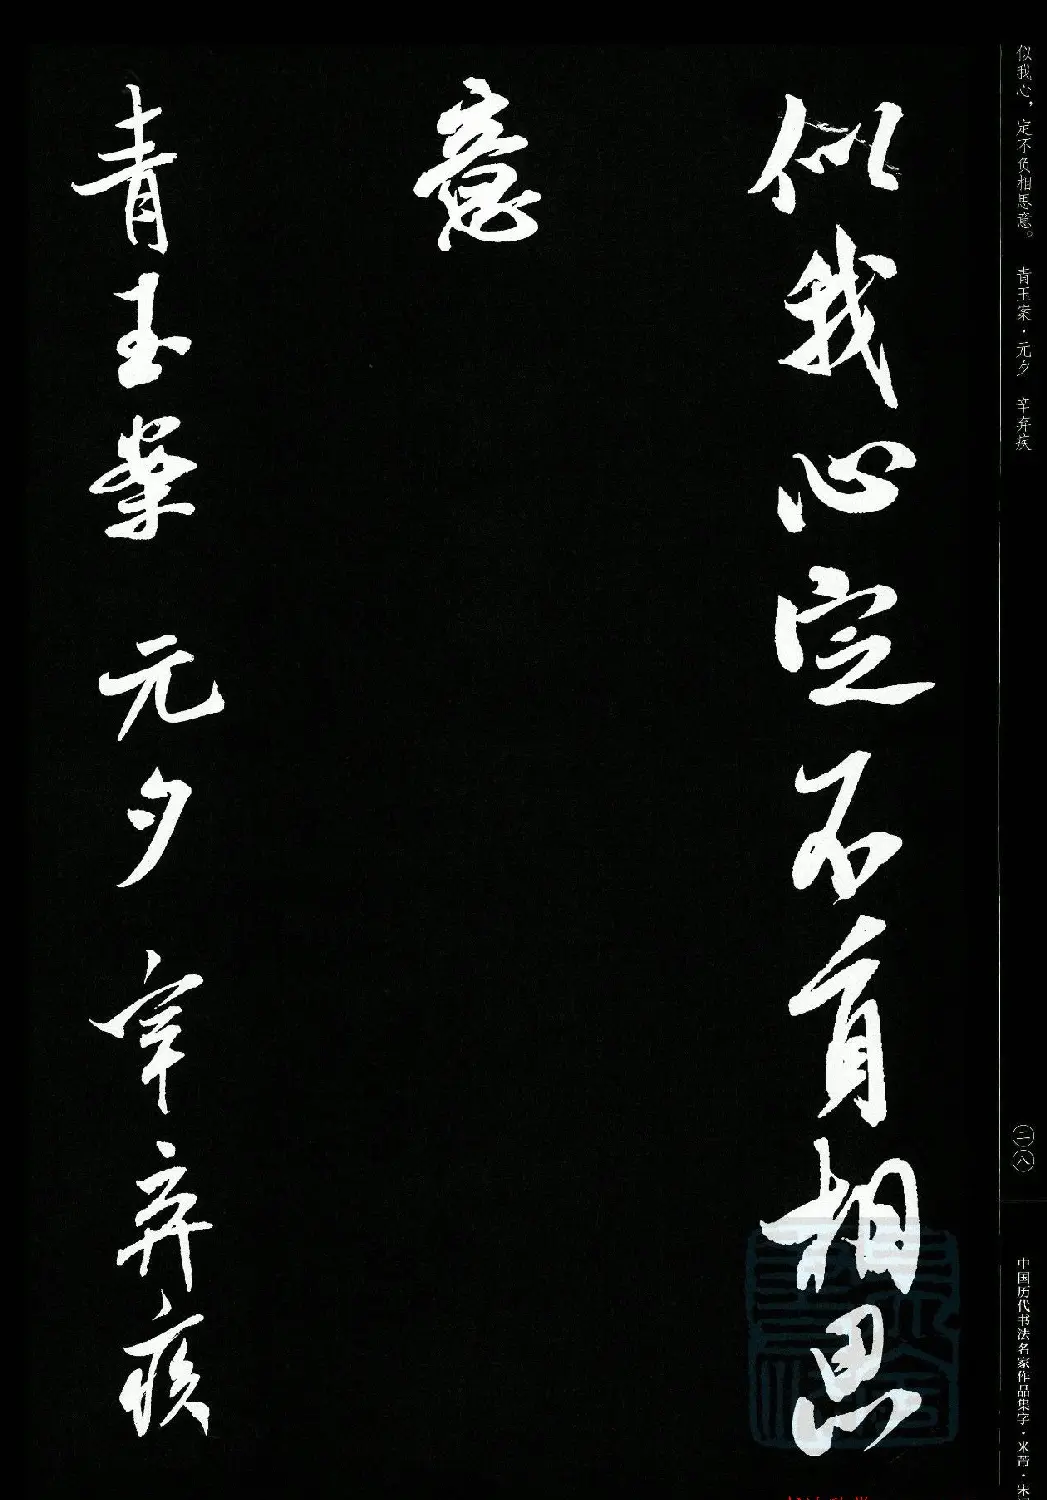 似我心，定不负相思意。 青玉案·元夕 辛弃疾
二八
中国历代书法名家作品集字·米芾·宋
似我心定不負相思
意
青玉案 元夕 辛弃疾